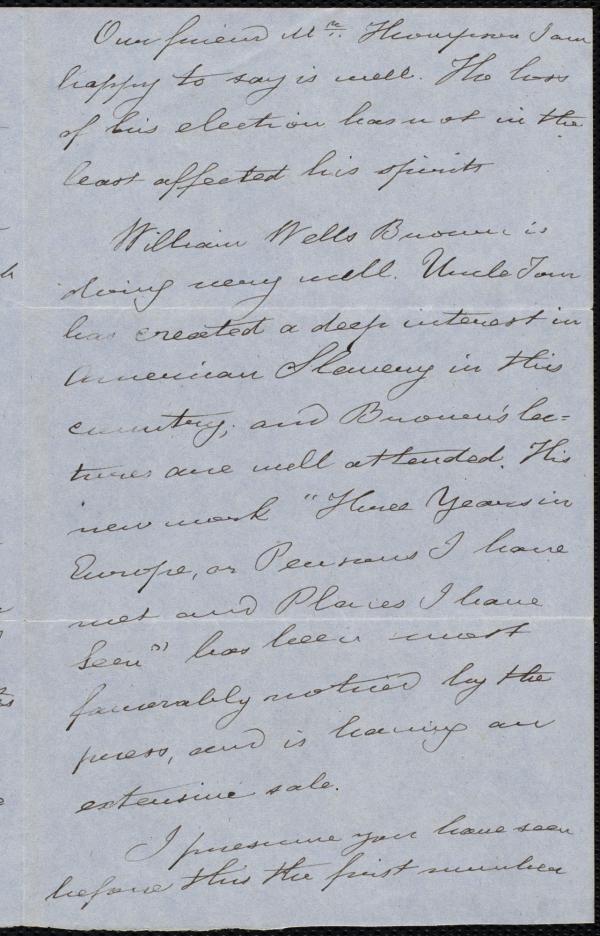 Our friend Mr. Thompson I am
happy to say is well. The loss
of his election has not in the
least affected his spirits
William Wells Brown is
doing very well. Uncle Tom
has created a deep interest in
American Slavery in this
country; and Brown's lec=
tures are well attended. His
new work "Three Years in
Europe, or Persons I have
met and Places I have
Seen" has been most
favorably noticed by the
press, and is having an
extensive sale.
I presume you have seen
before this the first number